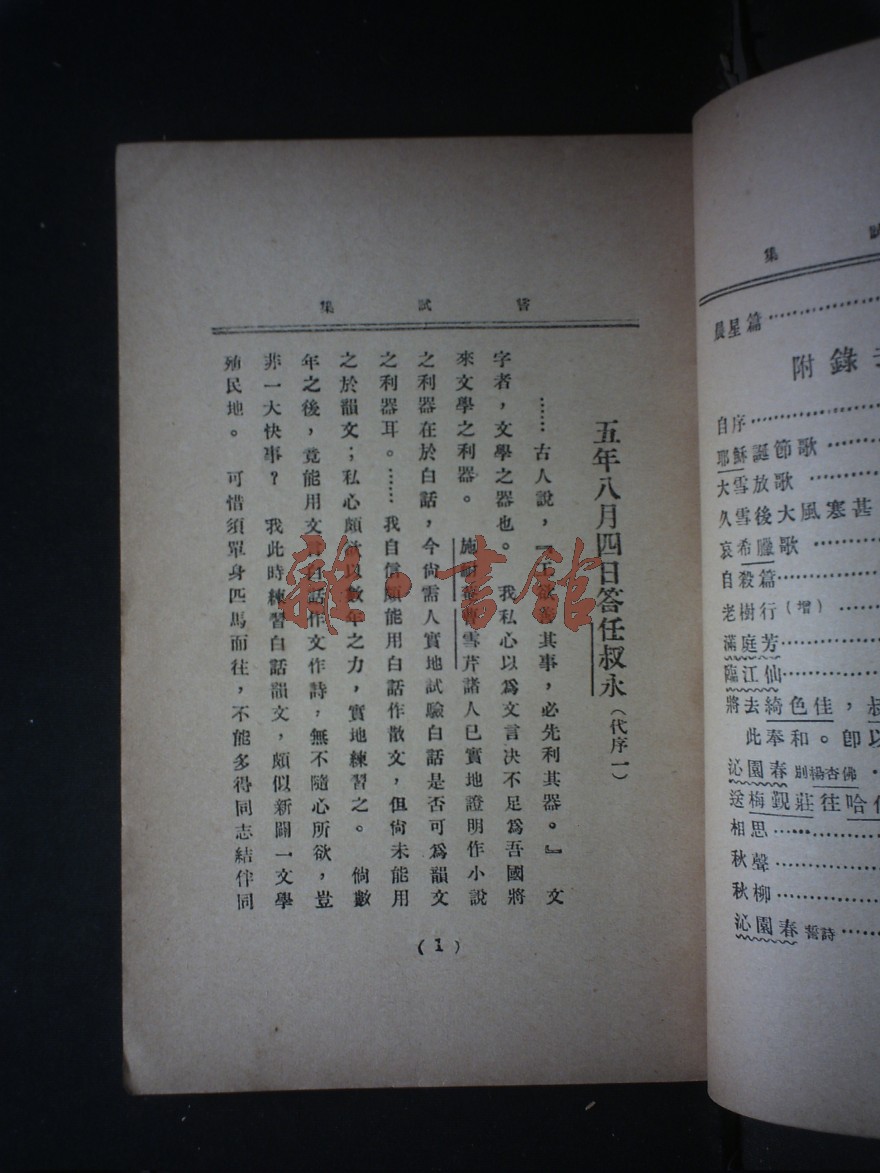 集 試 嘗
五年八月四日答任叔永(代序一)
……古人說,『工欲善其事,必先利其器。』 文
字者,文學之器也。 我私心以爲文言決不足爲吾國將
來文學之利器。 施耐菴曹雪芹諸人已實地證明作小說
之利器在於白話,今尙需人實地試驗白話是否可爲韻文
之利器耳。……我自信頗能用白話作散文,但尙未能用
之於韻文;私心頗欲以數年之力,實地練習之。 倘數
年之後,竟能用文言白話作文作詩,無不隨心所欲,豈
非一大快事? 我此時練習白話韻文,頗似新闢一文學
殖民地。 可惜須單身匹馬而往,不能多得同志結伴同
(1)
雜·書館
集 試
晨星篇……
附錄去
自序……
耶穌誕節歌……
大雪放歌……
久雪後大風寒甚
哀希臘歌……
自殺篇……
老樹行(增)……
滿庭芳……
臨江仙……
將去綺色佳,叔
此奉和。卽以
沁園春 別楊杏佛……
送梅覲莊往哈佛
相思……
秋聲……
秋柳……
沁園春 誓詩……